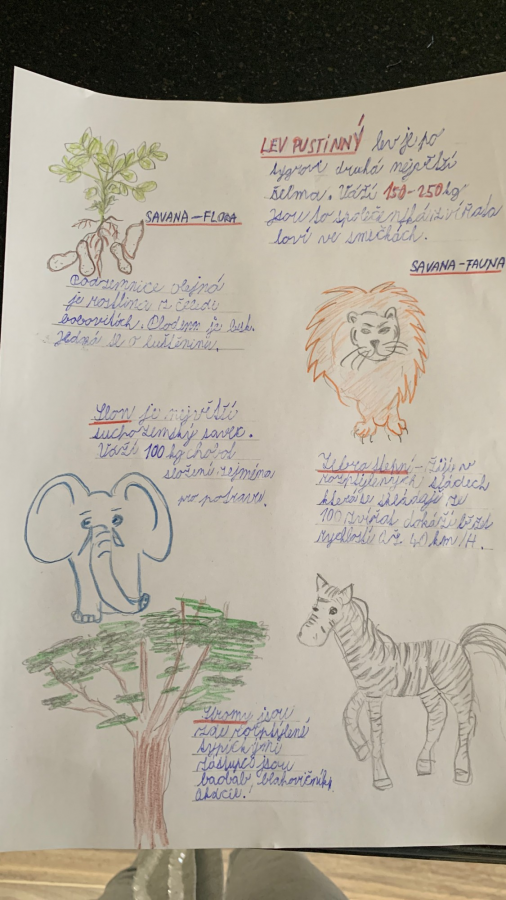 LEV PUSTINNÝ lev je po
tygrovi druhá největší
šelma. Váží 150-250kg
Jsou to
loví ve smečkách.
SAVANA-FLORA
SAVANA-FAUNA
Podzemnice olejná
je rostlina z čeledi
bobovitých. Plodem je lusk.
Jedná se o luštěninu.
Slon je největší
suchozemský savec.
Váží 100 kg chobot
složení zejména
pro potravu.
Zebra stepní - žije v
rozptýlených stádech
které se skládají ze
100 zvířat dokáží běžet
rychlostí až 40 km/H.
Stromy jsou
zde rozptýlené
typickými
zástupci jsou
baobab, blahovičníky,
akácie.